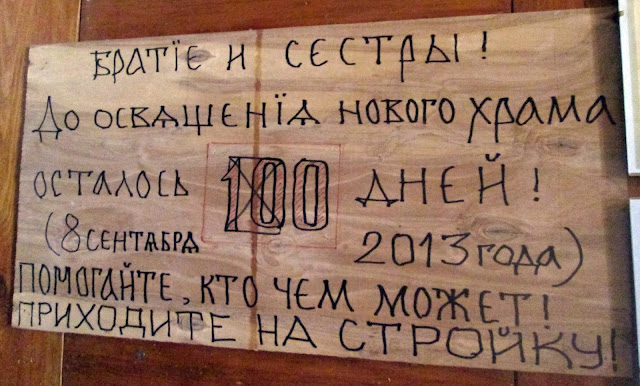 БРАТЇЕ И СЕСТРЫ!
ДО ОСВѦЩЕНЇѦ НОВОГО ХРАМА
ОСТАЛОСЬ 100 ДНЕЙ!
(8 СЕНТѦБРѦ 2013 ГОДА)
ПОМОГАЙТЕ, КТО ЧЕМ МОЖЕТ!
ПРИХОДИТЕ НА СТРОЙКУ!